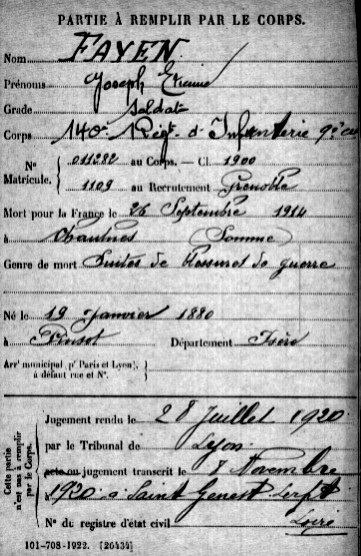 PARTIE À REMPLIR PAR LE CORPS.
Nom FAYEN
Prénoms Joseph Etienne
Grade Soldat
Corps 140e Régt d'Infanterie 9e Cie
Nº Matricule. 011282 au Corps. — Cl. 1900
1109 au Recrutement Grenoble
Mort pour la France le 26 Septembre 1914
à Chaulnes (Somme)
Genre de mort Suites de blessures de guerre
Né le 19 Janvier 1880
à Pinsot Département Isère
Arrt municipal (pr Paris et Lyon), à défaut rue et Nº.
Cette partie n'est pas à remplir par le Corps.
Jugement rendu le 28 Juillet 1920
par le Tribunal de Lyon
acte ou jugement transcrit le 8 Novembre
1920 à Saint Genest Lerpt
Loire
Nº du registre d'état civil
101-708-1922. [26434]